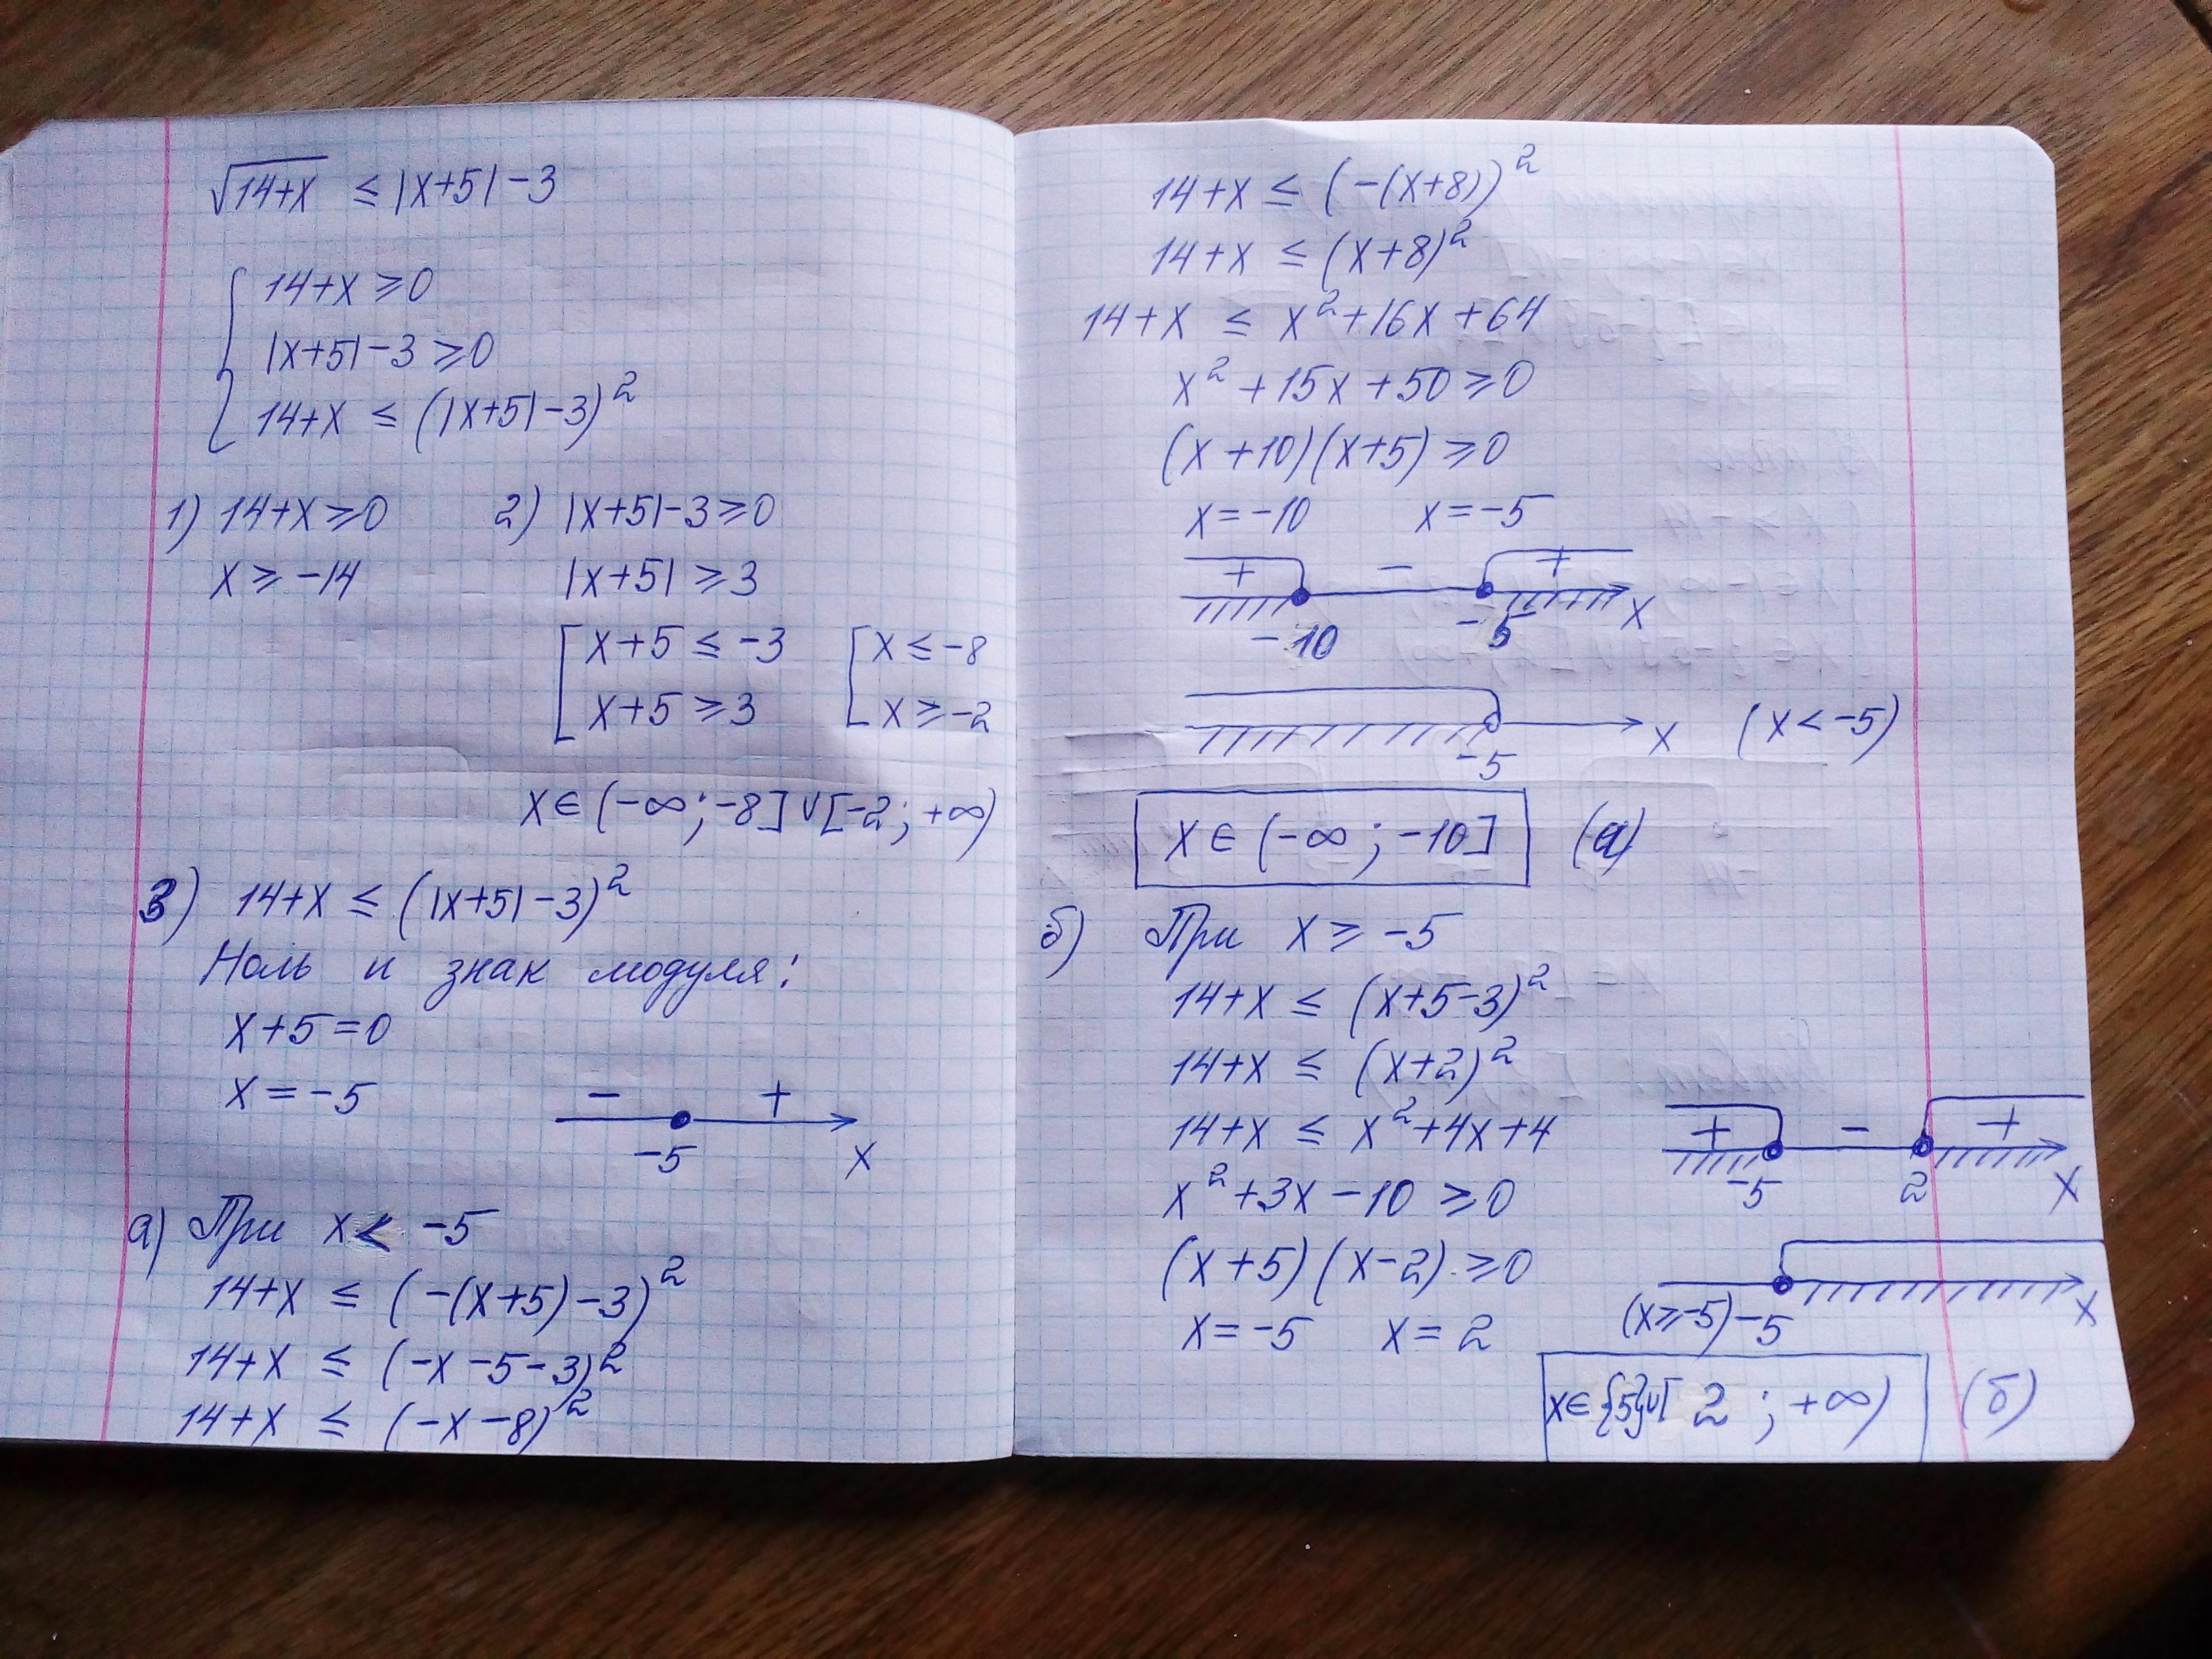 √14+x ≤ |x+5|-3
14+x ≥ 0
|x+5|-3 ≥ 0
14+x ≤ (|x+5|-3)²
1) 14+x ≥ 0
x ≥ -14
2) |x+5|-3 ≥ 0
|x+5| ≥ 3
x+5 ≤ -3
x+5 ≥ 3
x ≤ -8
x ≥ -2
x ∈ (-∞; -8] ∪ [-2; +∞)
3) 14+x ≤ (|x+5|-3)²
Ноль и знак модуля:
x+5=0
x = -5
- +
-5 x
а) При x < -5
14+x ≤ (-(x+5)-3)²
14+x ≤ (-x-5-3)²
14+x ≤ (-x-8)²
14+x ≤ (-(x+8))²
14+x ≤ (x+8)²
14+x ≤ x²+16x+64
x²+15x+50 ≥ 0
(x+10)(x+5) ≥ 0
x=-10 x=-5
+ - +
-10 -5 x
-5 x (x < -5)
x ∈ (-∞; -10] (а)
б) При x ≥ -5
14+x ≤ (x+5-3)²
14+x ≤ (x+2)²
14+x ≤ x²+4x+4
x²+3x-10 ≥ 0
(x+5)(x-2) ≥ 0
x=-5 x=2
+ - +
-5 2 x
(x ≥ -5) -5 x
x ∈ {5} ∪ [2; +∞) (б)